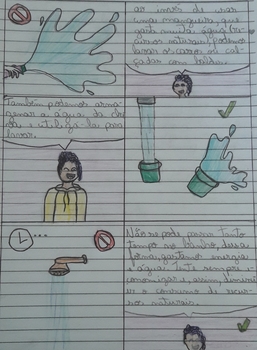 ao invés de usar
uma mangueira, que
gasta muita água (re-
cursos naturais), podemos
lavar os carros ou cal-
çadas com baldes.
Também podemos arma-
zenar a água da chu-
va e utilizá-la para
lavar.
Não se pode passar tanto
tempo no banho, dessa
forma, gastamos energia
e água. Tente sempre e-
conomizar e, assim, diminui-
se o consumo de recur-
sos naturais.